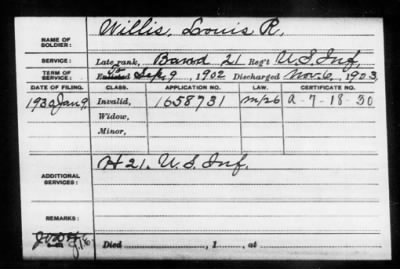 NAME OF SOLDIER: Willis, Louis R.
SERVICE: Late rank, Band 21 Reg't U.S. Inf,
TERM OF SERVICE: Enlisted Sep. 9, 1902 Discharged Nov. 6, 1903
DATE OF FILING. CLASS. APPLICATION NO. LAW. CERTIFICATE NO.
1930 Jan 9. Invalid, 1658731 A-7-18-30
Widow,
Minor,
ADDITIONAL SERVICES: H 21. U.S. Inf.
REMARKS:
Died , 1 , at